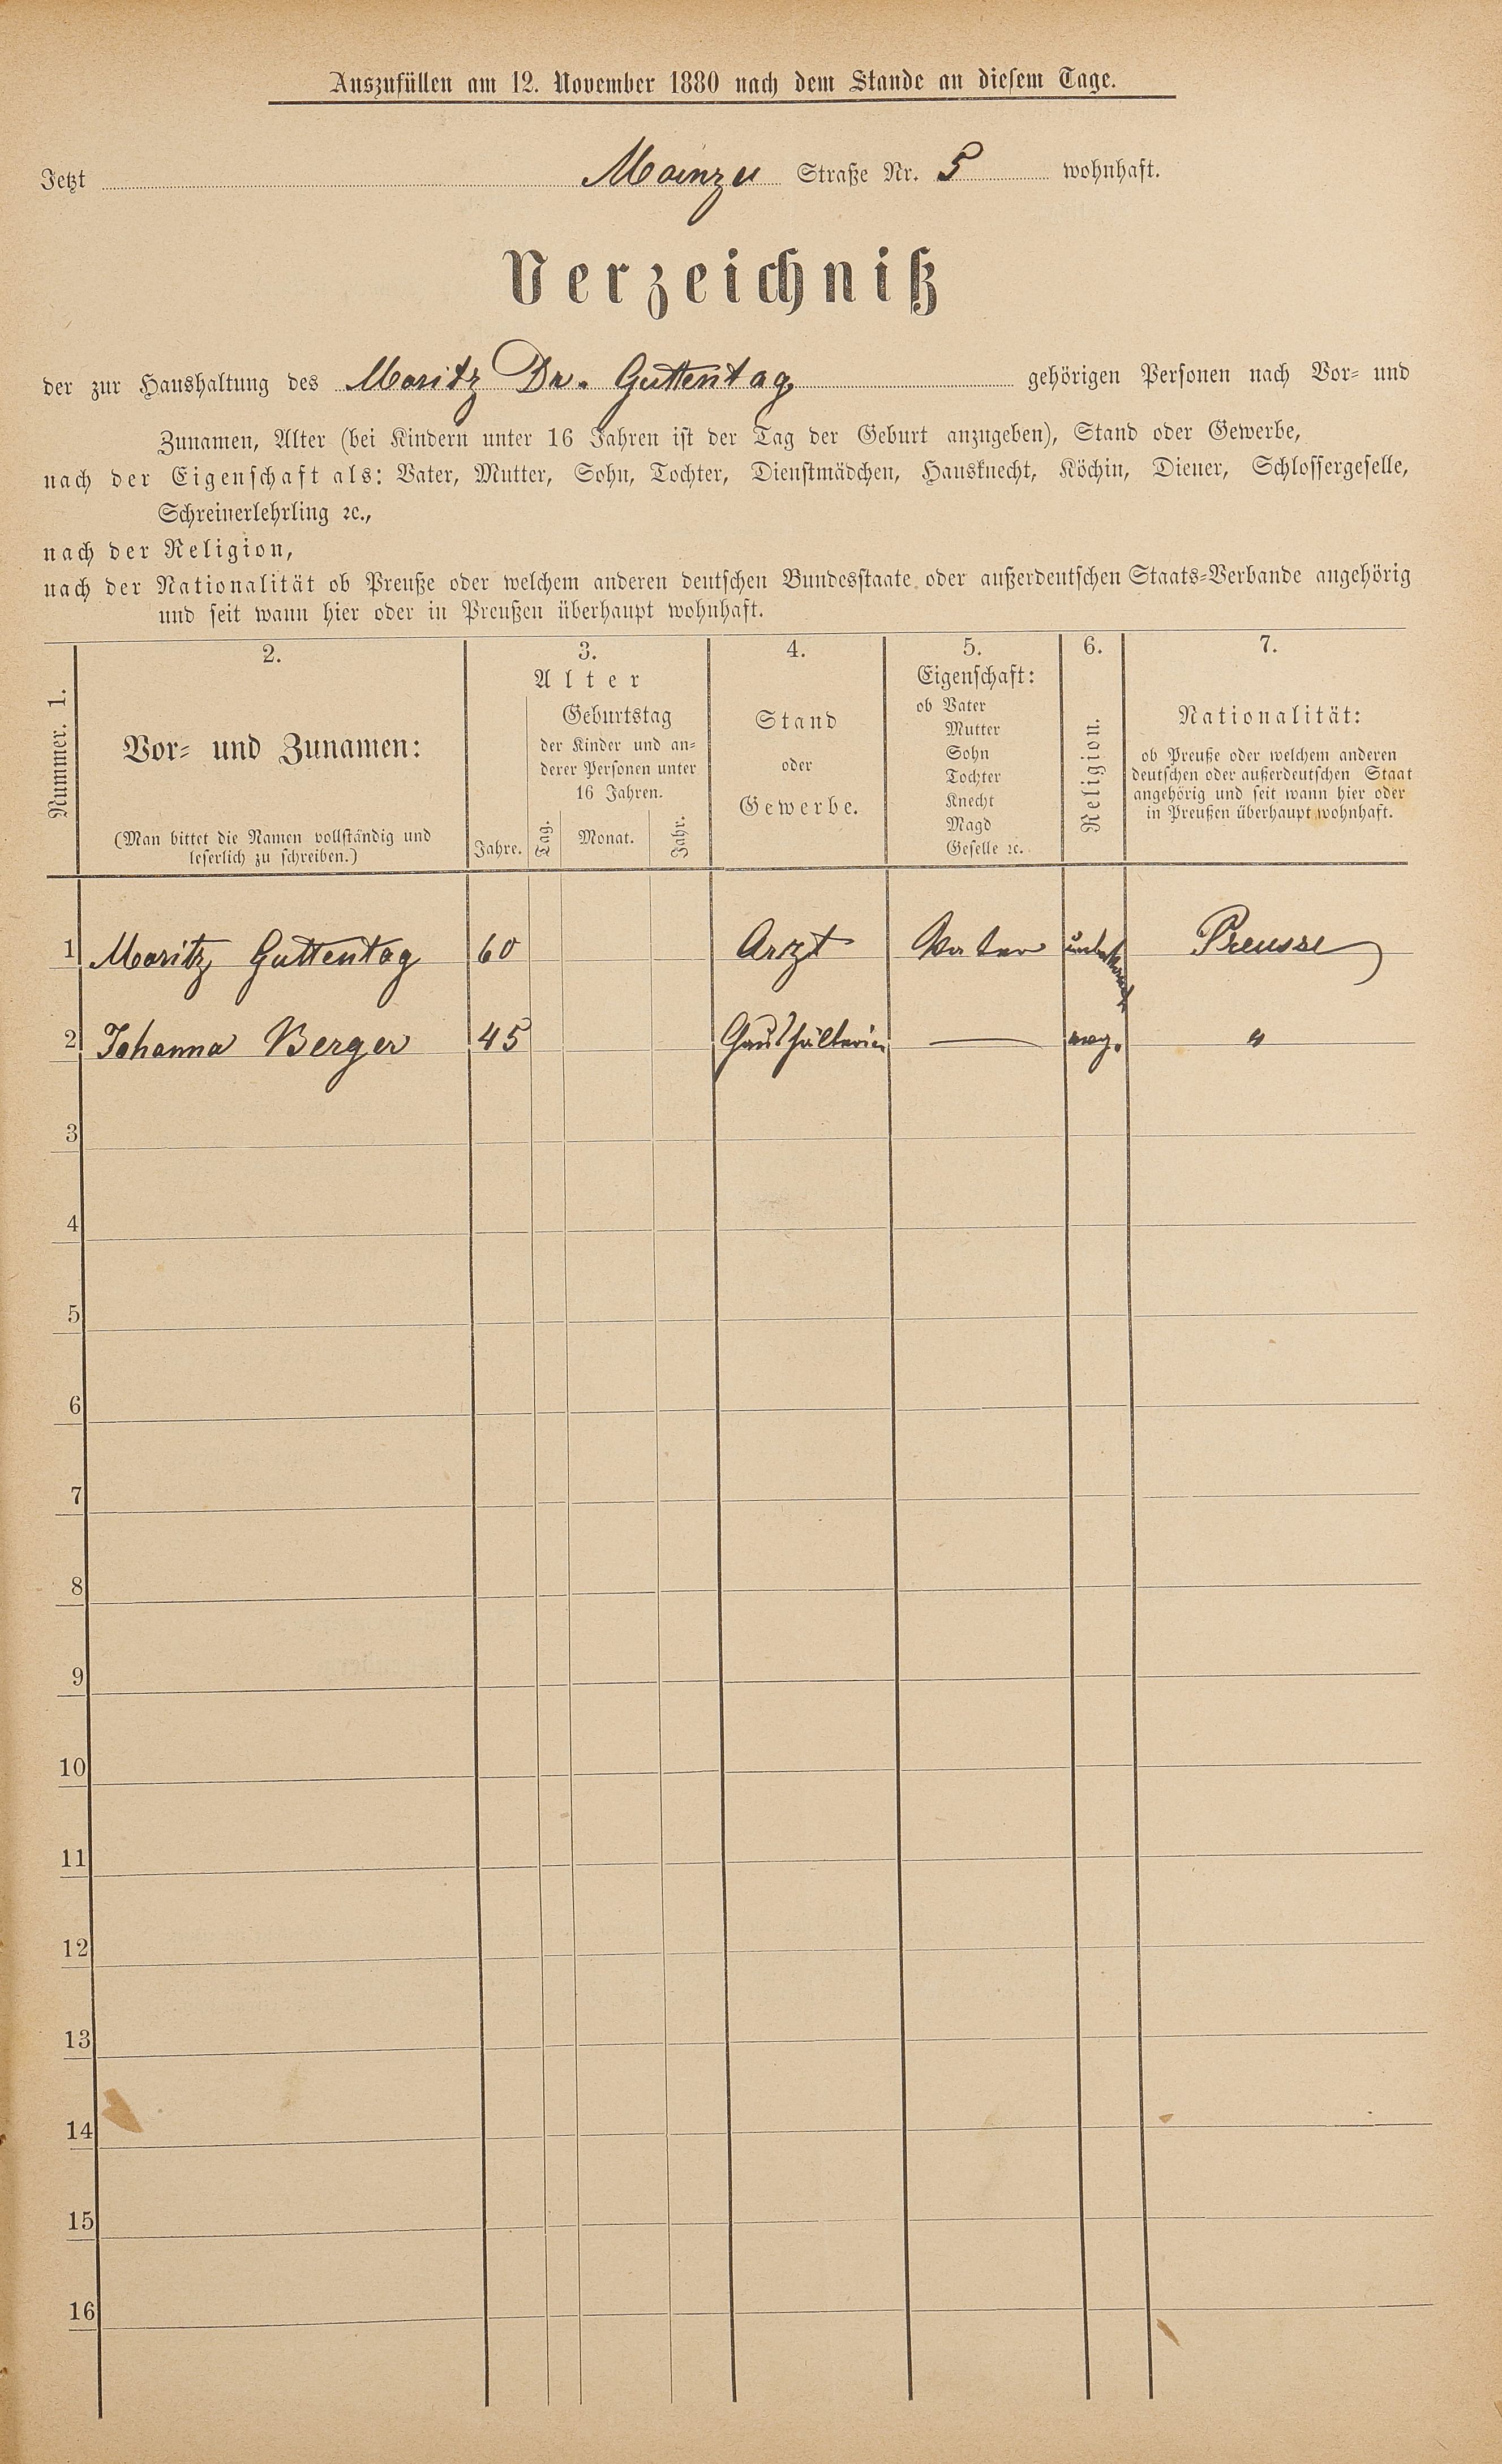 Auszufüllen am 12. November 1880 nach dem Stande an diesem Tage.
Jetzt Mainzer Straße Nr. 5 wohnhaft.
Verzeichniß
der zur Haushaltung des Moritz Dr. Guttentag gehörigen Personen nach Vor- und
Zunamen, Alter (bei Kindern unter 16 Jahren ist der Tag der Geburt anzugeben), Stand oder Gewerbe,
nach der Eigenschaft als: Vater, Mutter, Sohn, Tochter, Dienstmädchen, Hausknecht, Köchin, Diener, Schlossergeselle,
Schreinerlehrling ꝛc.,
nach der Religion,
nach der Nationalität ob Preuße oder welchem anderen deutschen Bundesstaate oder außerdeutschen Staats-Verbande angehörig
und seit wann hier oder in Preußen überhaupt wohnhaft.
Nummer. 1.
2.
Vor- und Zunamen:
(Man bittet die Namen vollständig und
leserlich zu schreiben.)
3.
Alter
Jahre.
Geburtstag
der Kinder und an-
derer Personen unter
16 Jahren.
Tag.
Monat.
Jahr.
4.
Stand
oder
Gewerbe.
5.
Eigenschaft:
ob Vater
Mutter
Sohn
Tochter
Knecht
Magd
Geselle ꝛc.
6.
Religion.
7.
Nationalität:
ob Preuße oder welchem anderen
deutschen oder außerdeutschen Staat
angehörig und seit wann hier oder
in Preußen überhaupt wohnhaft.
1 Moritz Guttentag 60 Arzt Vater unbekannt Preusse
2 Johanna Berger 45 Haushälterin — evg. "
3
4
5
6
7
8
9
10
11
12
13
14
15
16